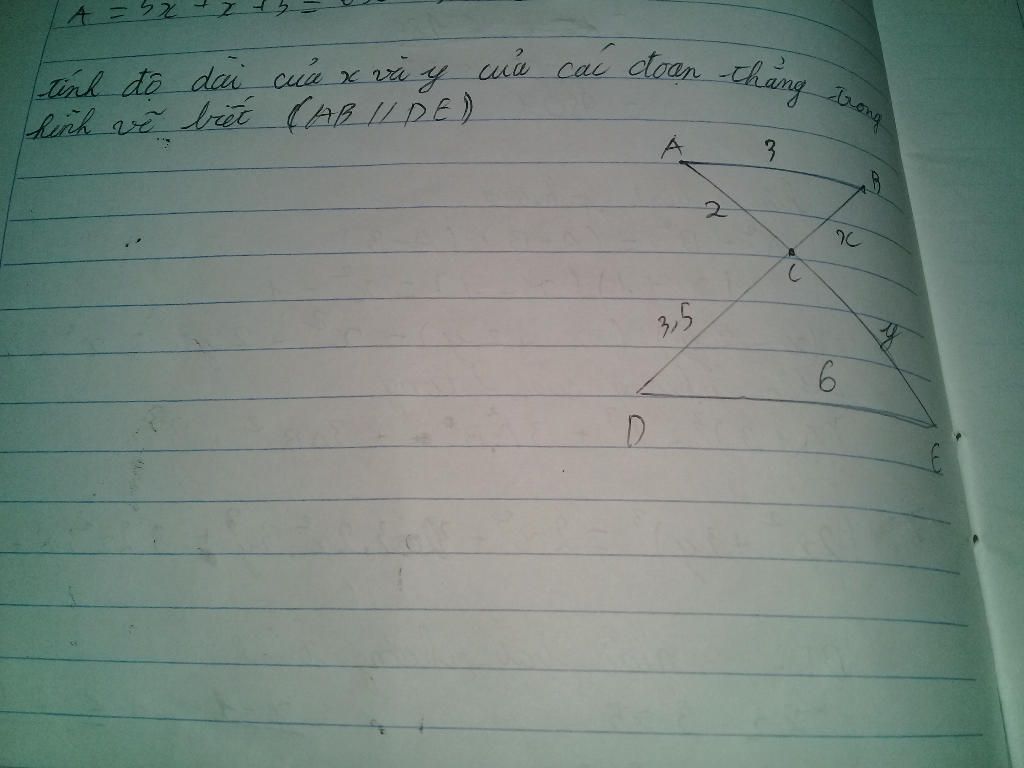 A = 3x + x + 3 =
tính độ dài của x và y của các đoạn thẳng trong
hình vẽ biết (AB // DE)
A 3 B
2 x
C
3,5 y
6
D E